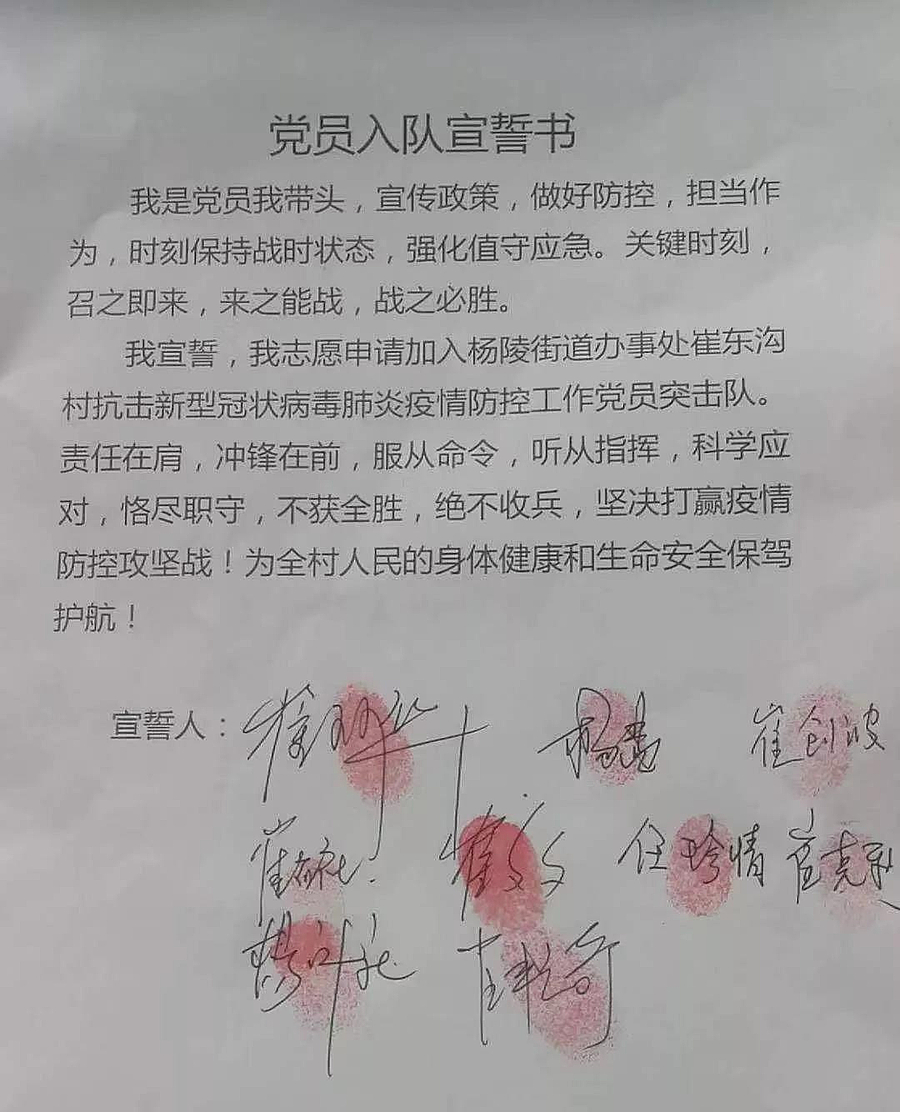 党员入队宣誓书
我是党员我带头，宣传政策，做好防控，担当作
为，时刻保持战时状态，强化值守应急。关键时刻，
召之即来，来之能战，战之必胜。
我宣誓，我志愿申请加入杨陵街道办事处崔东沟
村抗击新型冠状病毒肺炎疫情防控工作党员突击队。
责任在肩，冲锋在前，服从命令，听从指挥，科学应
对，恪尽职守，不获全胜，绝不收兵，坚决打赢疫情
防控攻坚战！为全村人民的身体健康和生命安全保驾
护航！
宣誓人：崔 崔创波
崔 崔 任玲情 崔克
杨